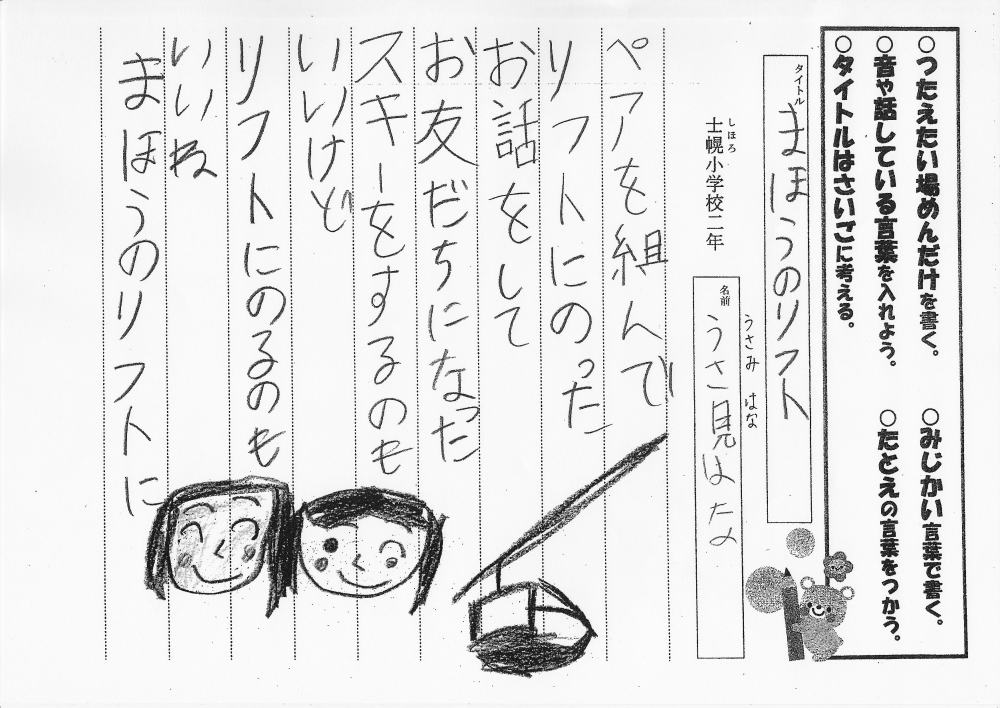 ○つたえたい場めんだけを書く。
○みじかい言葉で書く。
○音や話している言葉を入れよう。
○たとえの言葉をつかう。
○タイトルはさいごに考える。
タイトル
まほうのリフト
しほろ
士幌小学校二年
うさみ はな
名前
うさ見はな
ペアを組んで
リフトにのった
お話をして
お友だちになった
スキーをするのも
いいけど
リフトにのるのも
いいね
まほうのリフトに